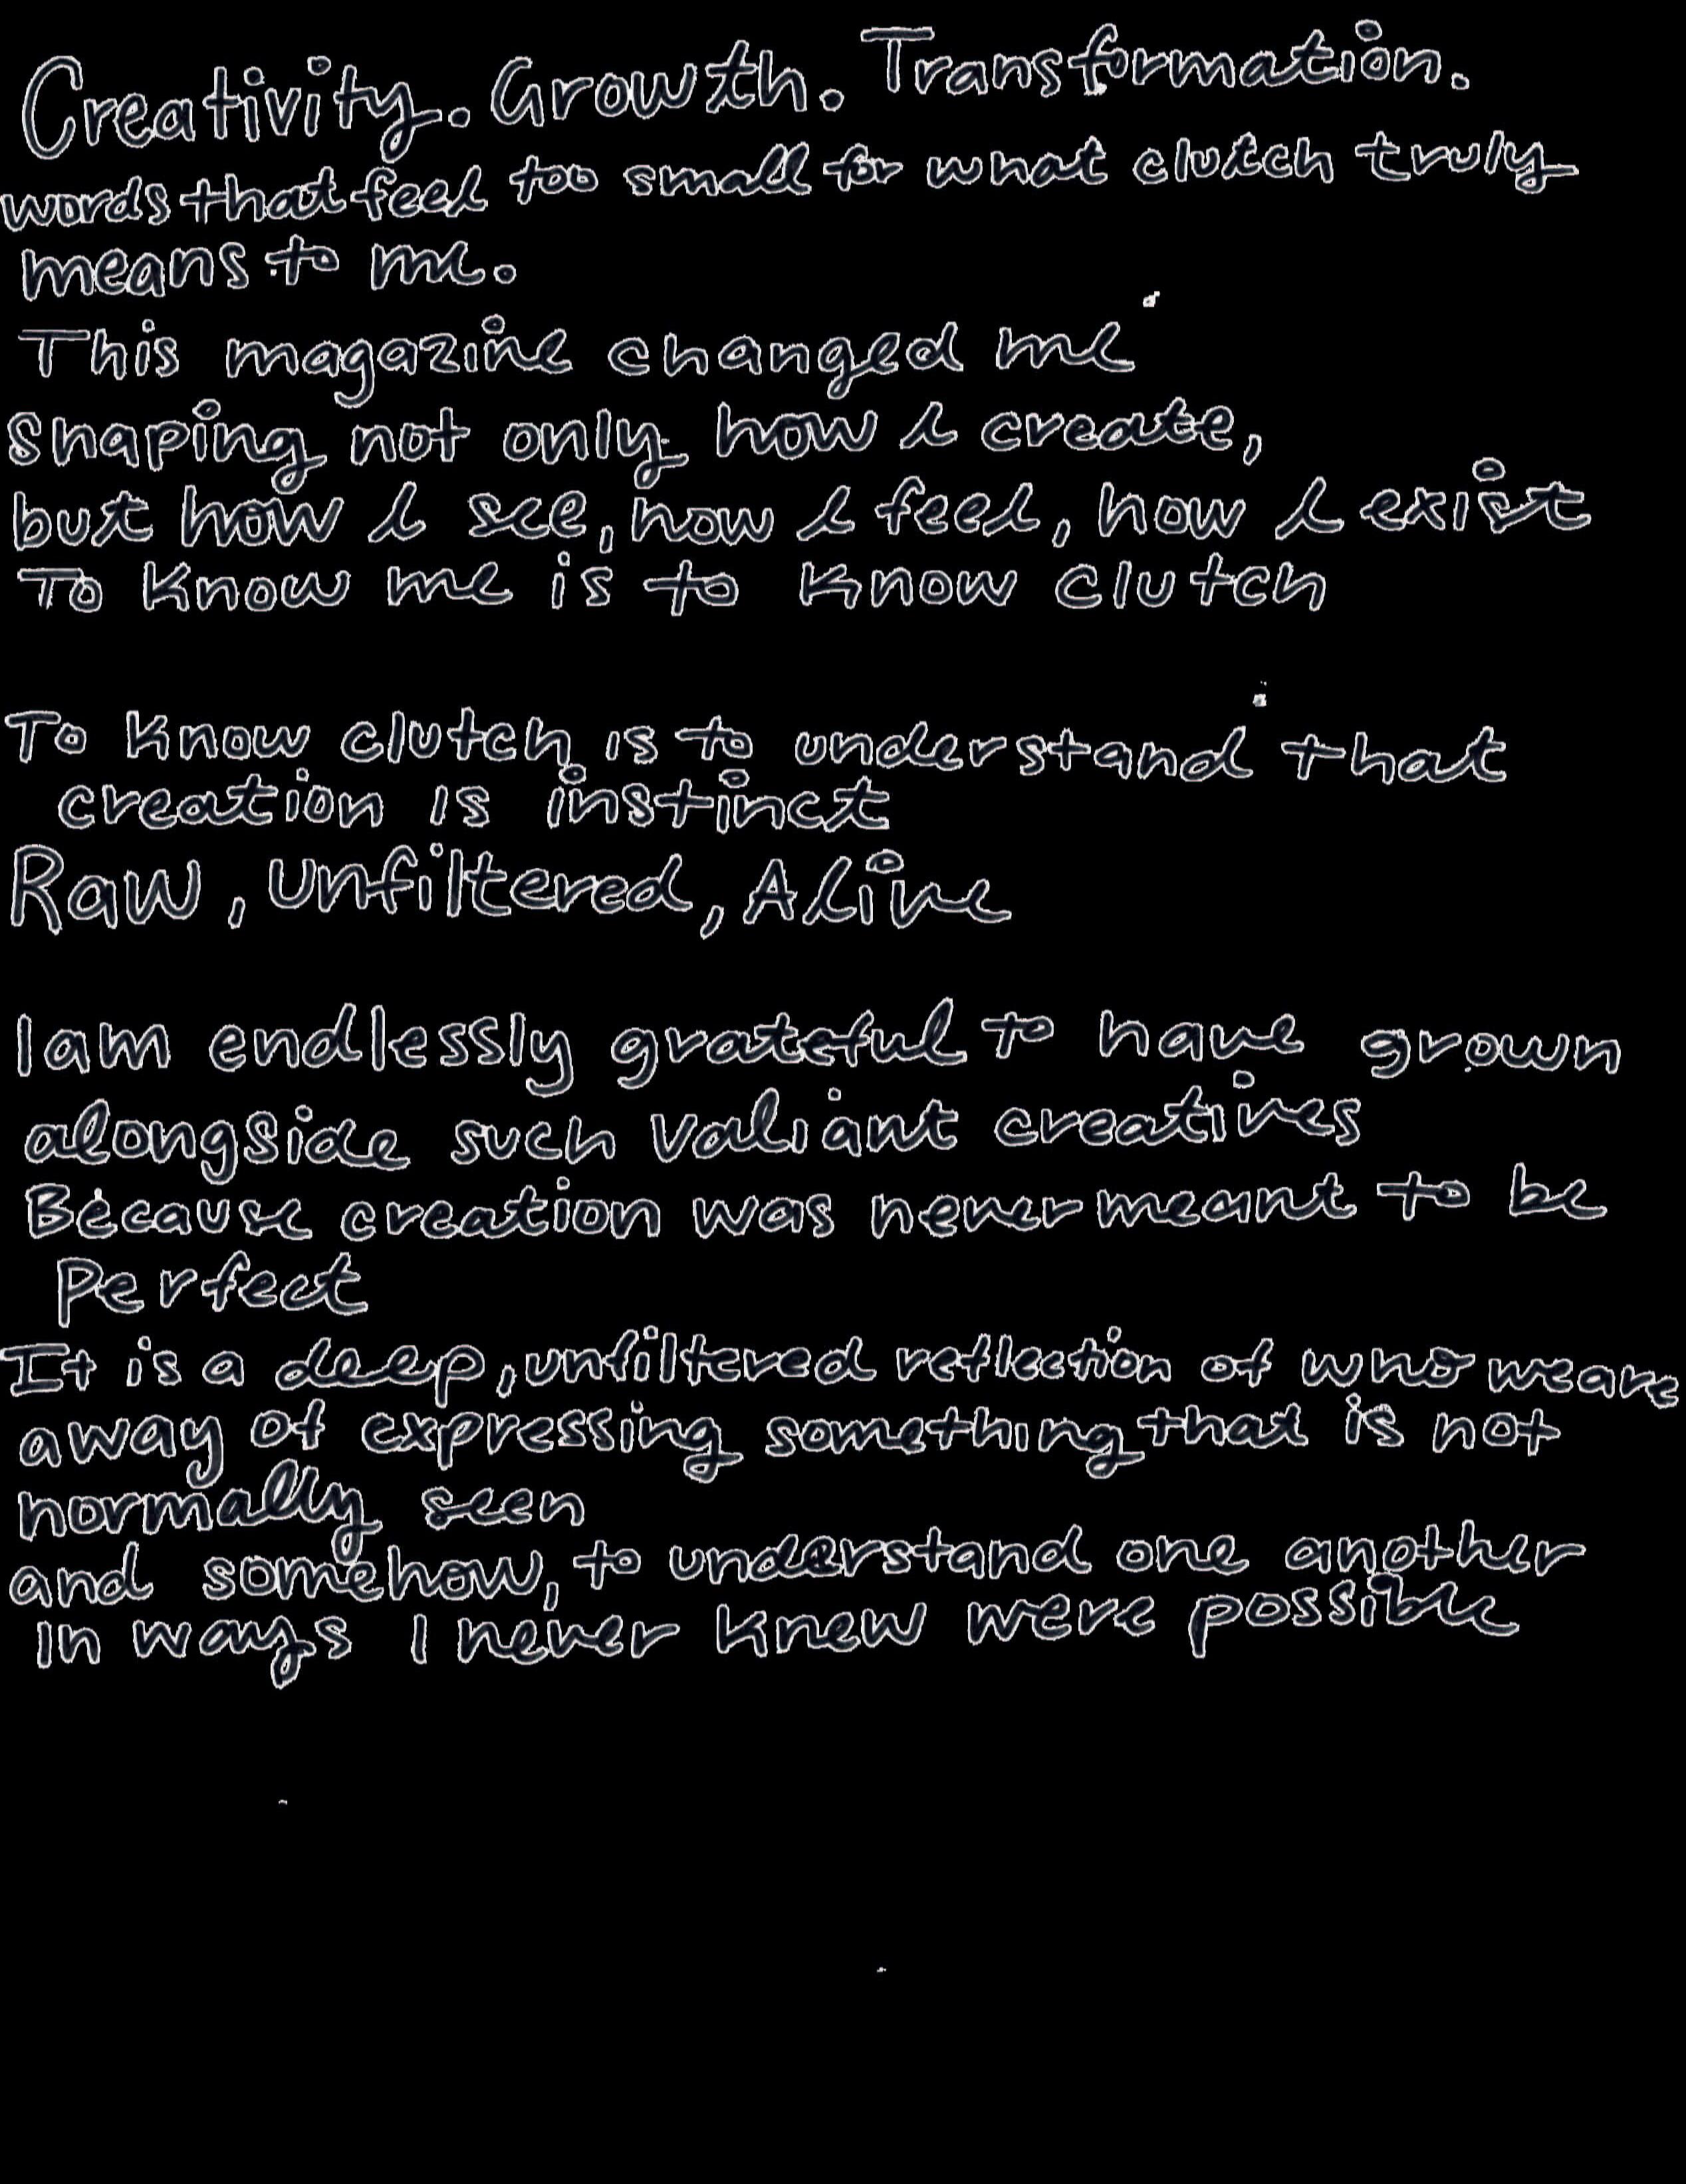 Creativity. Growth. Transformation.
words that feel too small for what clutch truly
means to me.
This magazine changed me
shaping not only how I create,
but how I see, how I feel, how I exist
To know me is to know clutch
To know clutch is to understand that
creation is instinct
Raw, unfiltered, Alive
I am endlessly grateful to have grown
alongside such valiant creatives
Because creation was never meant to be
perfect
It is a deep, unfiltered reflection of who we are
away of expressing something that is not
normally seen
and somehow, to understand one another
in ways I never knew were possible